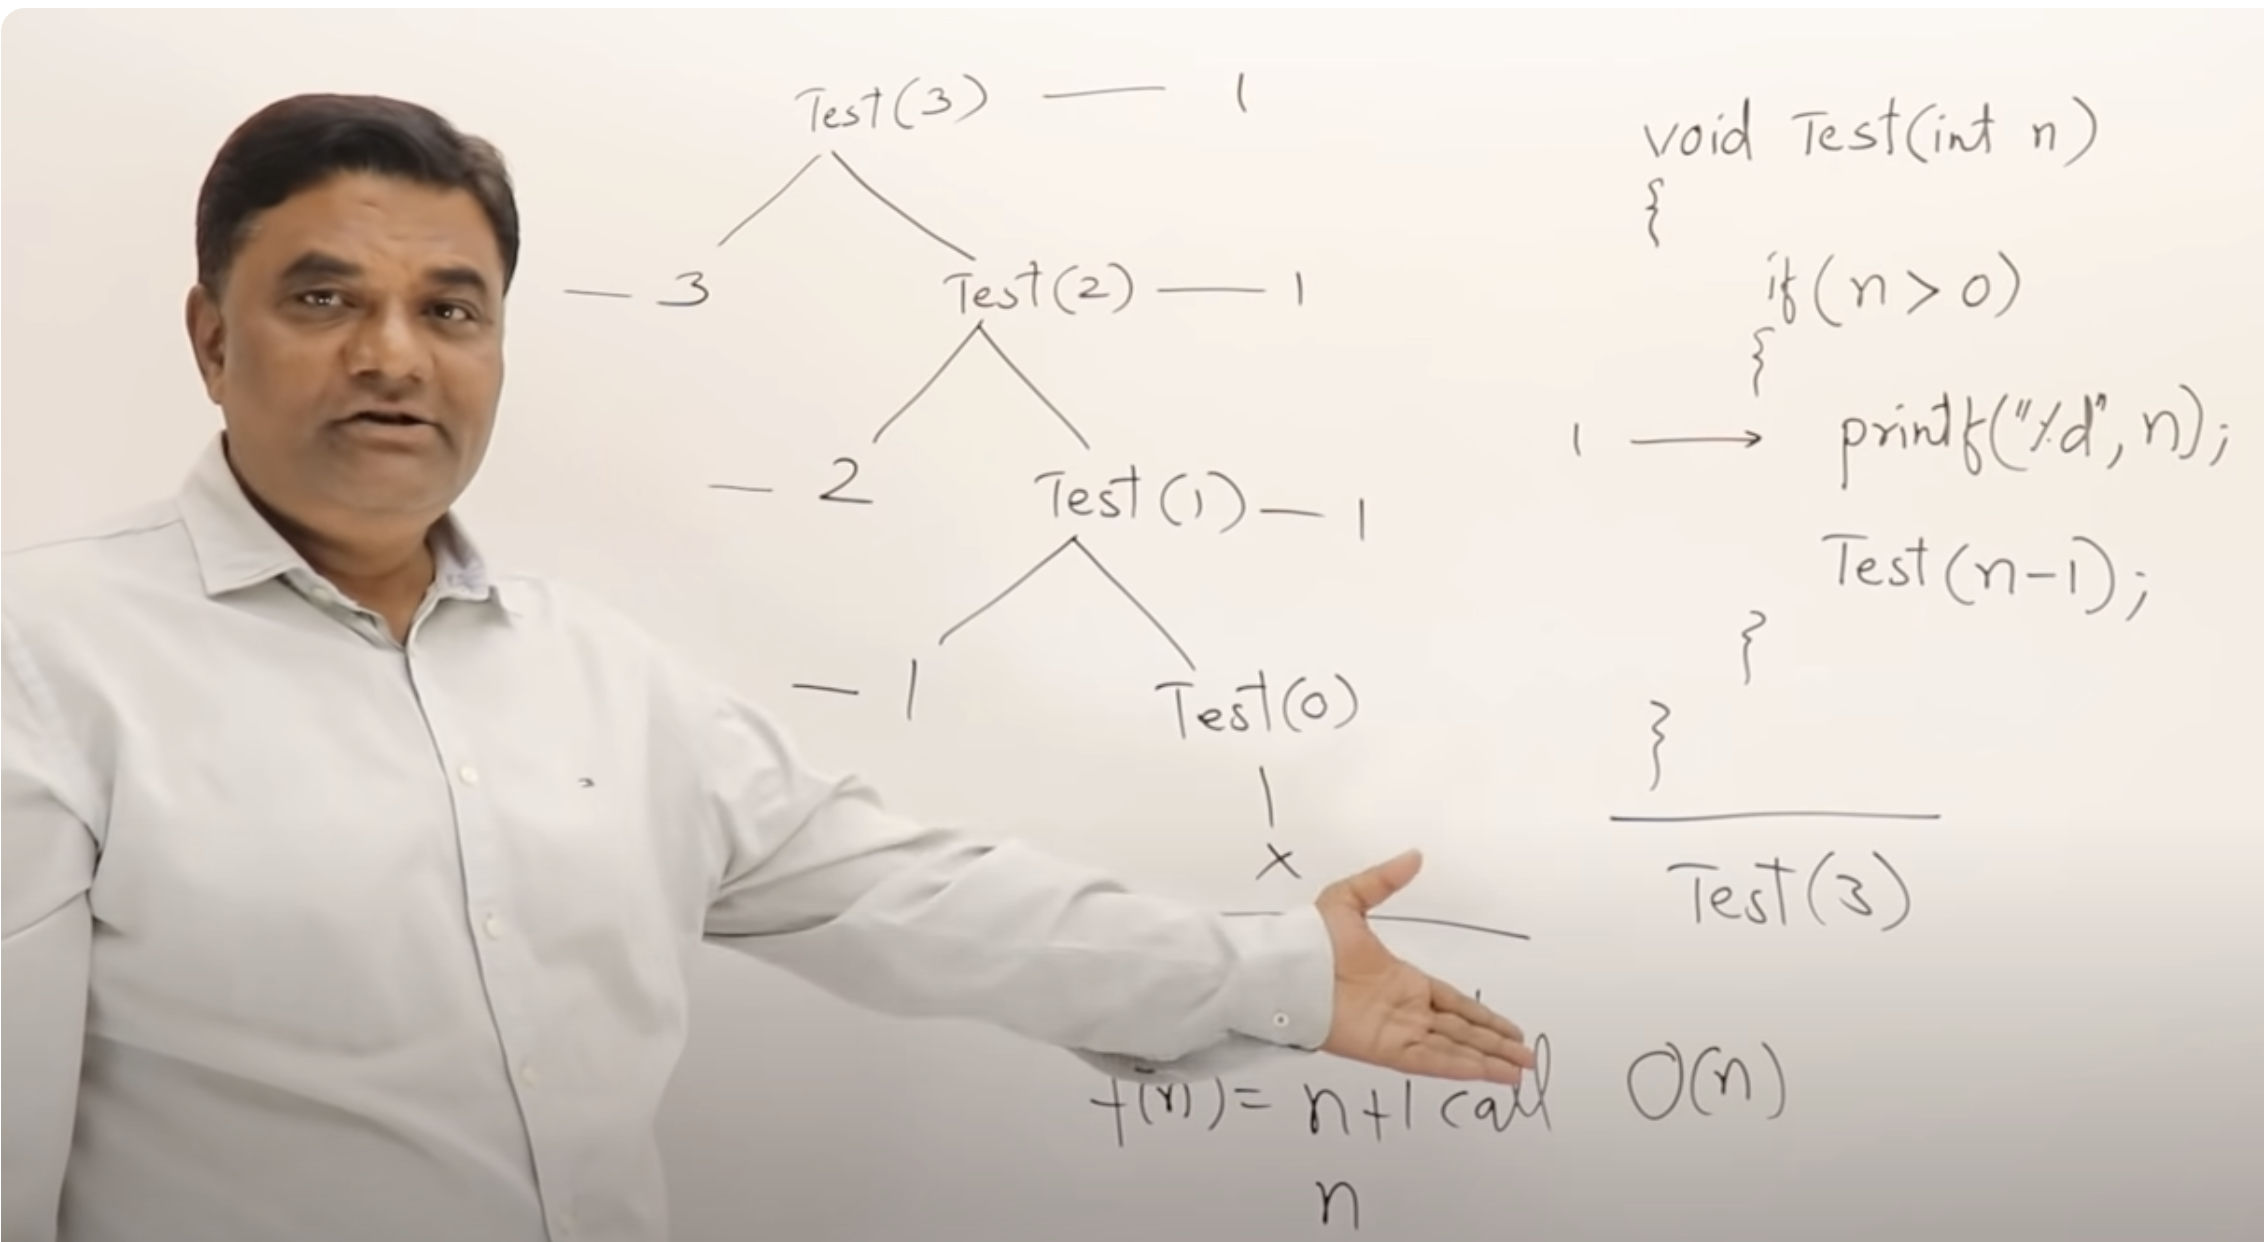 Test(3) — 1
— 3
Test(2) — 1
— 2
Test(1) — 1
— 1
Test(0)
x
f(n) = n+1 call
n
O(n)
void Test(int n)
{
if(n > 0)
{
1 → printf("%d", n);
Test(n-1);
}
}
Test(3)